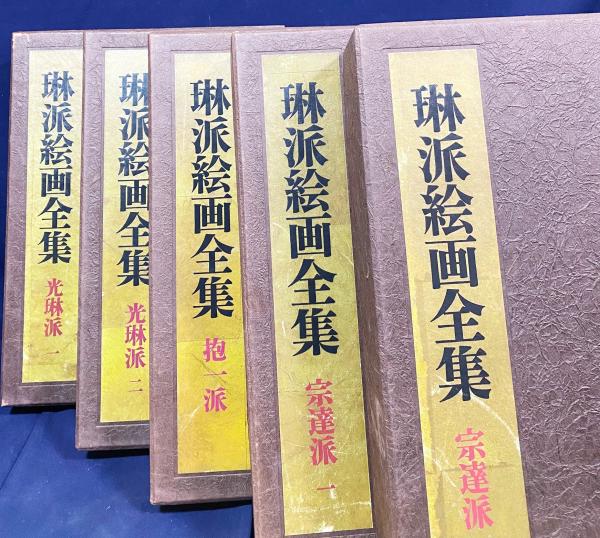 琳派絵画全集
光琳派 一
琳派絵画全集
光琳派 二
琳派絵画全集
抱一派
琳派絵画全集
宗達派 一
琳派絵画全集
宗達派